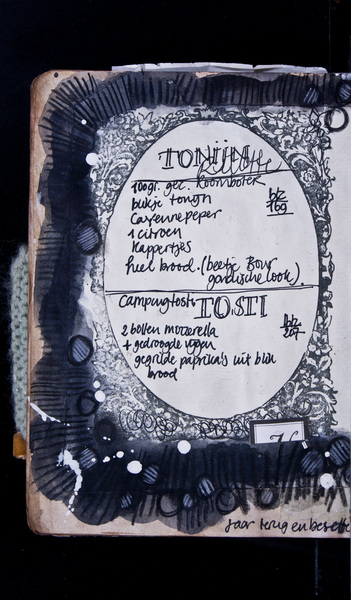 TONIJN Rillette
100gr. gez. Roomboter
blikje tonijn
blz 169
Cayennepeper
1 citroen
Kappertjes
heel brood. (beetje Bour
gondische look).
Campingtosti TOSTI
2 bollen mozzarella
blz 207
+ gedroogde vijgen
gegrilde paprika's uit blik
brood
Jaar terug en besef